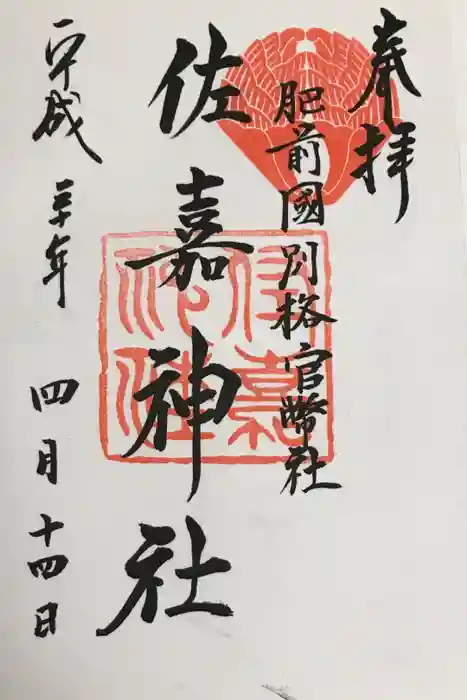 奉拝
肥前國別格官幣社
佐嘉神社
平成三十年四月十四日
佐嘉神社